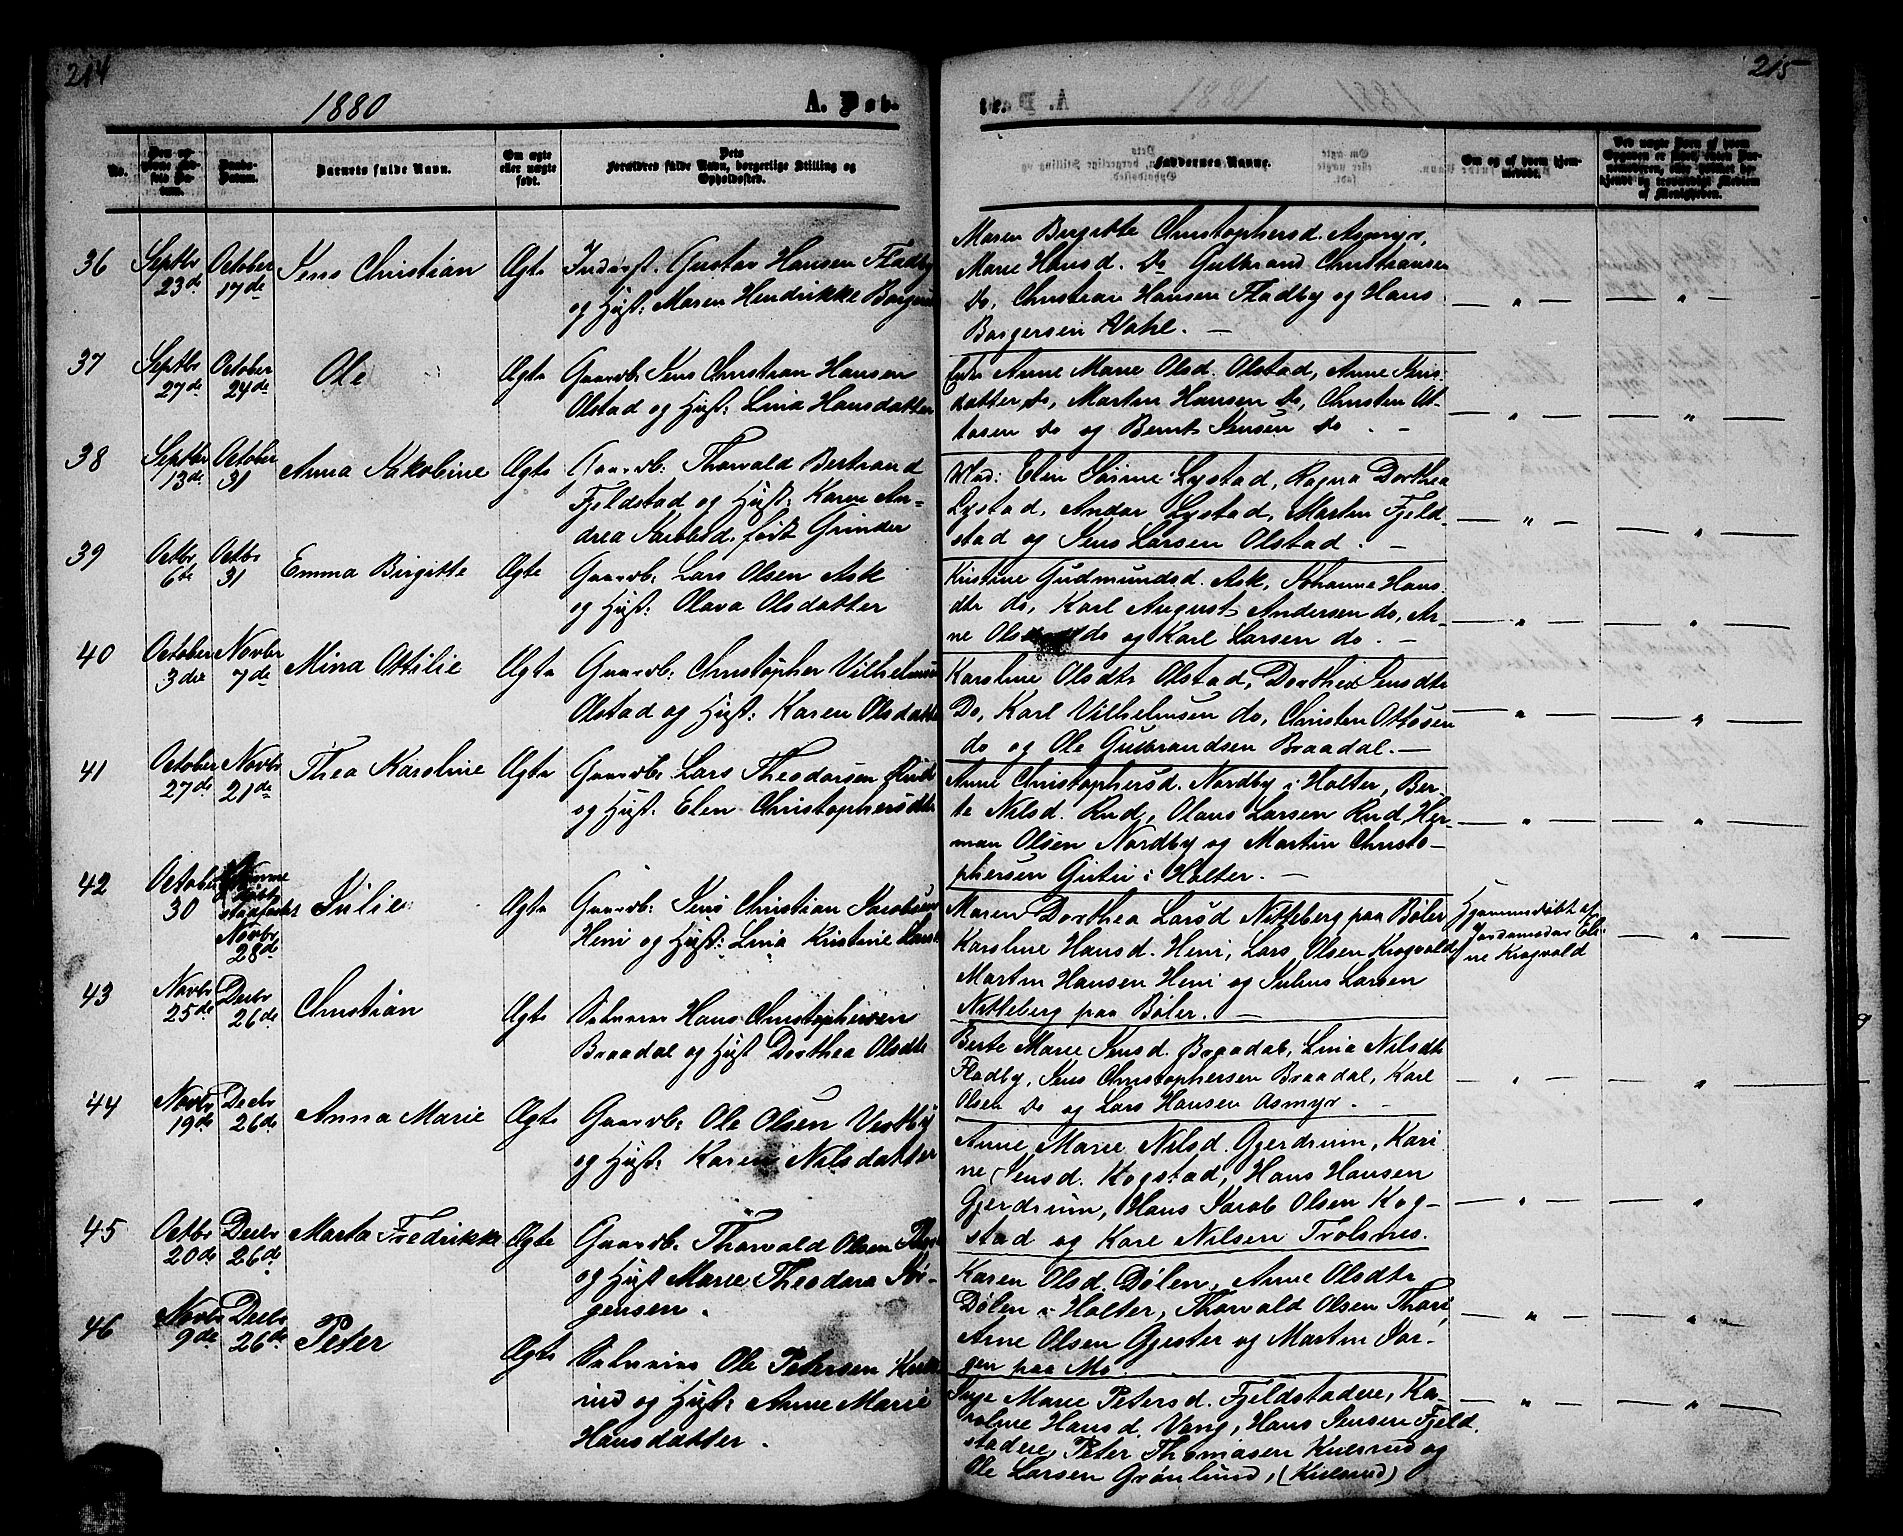 214
1880
A. Døb-
No.
Barnets fulde Navn.
Om ægte eller uægte født.
Dets Forældres fulde Navn, borgerlige Stilling og Opholdssted.
36 Septbr 23de October 17de Jens Christian Ægte Inderst. Gustav Hansen Fladby
og Hust: Maren Hendrikke
37 Septbr 27de October 24de Ole Ægte Gaardb: Jens Christian Hansen
Olstad og Hust: Lina Hansdatter
38 Septbr 13de October 31 Anna Jakobine Ægte Gaardb: Thorvald Bertrand
Fjeldstad og Hust: Karen An-
drea født Grinder
39 Octbr 6te Octbr 31 Emma Birgitte Ægte Gaardb: Lars Olsen Ask
og Hust: Olava Olsdatter
40 October 3die Novbr 7de Mina Ottilie Ægte Gaardb: Christopher Vilhelmsen
Olstad og Hust: Karen Olsdatter
41 October 27de Novbr 21de Thea Karoline Ægte Gaardb: Lars Theodorsen
og Hust: Elen Christophersdtr
42 October 30 Novbr 28de Julie Ægte Gaardb: Jens Christian Jacobsen
Heni og Hust: Lina Kristine
43 Novbr 25de Decbr 26de Christian Ægte Selveier Hans Christophersen
Braadal og Hust Dorthea Olsdtr
44 Novbr 19de Decbr 26de Anna Marie Ægte Gaardb: Ole Olsen Vestby
og Hust: Karen Nilsdatter
45 Octbr 20de Decbr 26de Marta Fredrikke Ægte Gaardb: Thorvald Olsen
og Hust Marie Theodora Jør-
gensen.
46 Novbr 9de Decbr 26de Peter Ægte Selveier Ole Petersen Kuls-
rud og Hust: Anne Marie
Hansdatter.
215
te.
Faddernes Navne.
Om og af hvem hjem-
medøbt.
Maren Birgitte Christophersd. Asmyr,
Marie Hansd. Do Gulbrand Christiansen
do, Christian Hansen Fladby og Hans
Borgersen Vahl. —
Enke Anne Marie Olsd. Olstad, Anne Jens-
datter do, Martin Hansen do, Christen Ot-
tosen do og Bernt Jensen do. -
Mad: Elen Lystad, Ragna Dorthea
Lystad, Andar Lystad, Martin Fjeld-
stad og Jens Larsen Olstad. -
Kristine Gudmundsd. Ask, Johanne Hans-
dtr do, Karl August Andersen do, Ar-
ne do og Karl Larsen do. —
Karoline Olsdtr Olstad, Dorthea Jensdtr
Do, Karl Vilhelmsen do, Christen Ottosen
do og Ole Gulbrandsen Braadal. —
Anne Christophersd. Nordby i Holter, Ber-
te Nilsd. Rud, Olaus Larsen Rud, Her-
man Olsen Nordby og Martin Christo-
phersen i Holter. —
Maren Dorthea Larsd Nitteberg paa Bøler
Karoline Hansd. Heni, Lars Olsen Krogvald,
Martin Hansen Heni og Julius Larsen
Nitteberg paa Bøler. —
Hjemmedøbt af
Jordemoder Eli-
ne Krogvald
Berte Marie Jensd. Braadal, Lina Nilsdtr
Fladby, Jens Christophersen Braadal, Karl
Olsen do og Lars Hansen Asmyr. -
Anne Marie Nilsd. Gjerdrum, Kari-
ne Jensd. Kogstad, Hans Hansen
Gjerdrum, Hans Jacob Olsen Kog-
stad og Karl Nilsen Trolsnes.
Karen Olsd. Dølen, Anne Olsdtr
Dølen i Holter, Thorvald Olsen
Arne Olsen Gjester og Martin Jør-
gen paa Mo.
Inge Marie Petersd. Fjeldstadeie, Ka-
roline Hansd. Vang, Hans Jensen Fjeld-
stadeie, Peter Thomasen Kulsrud og
Ole Larsen Grønlund, (Kulsrud)